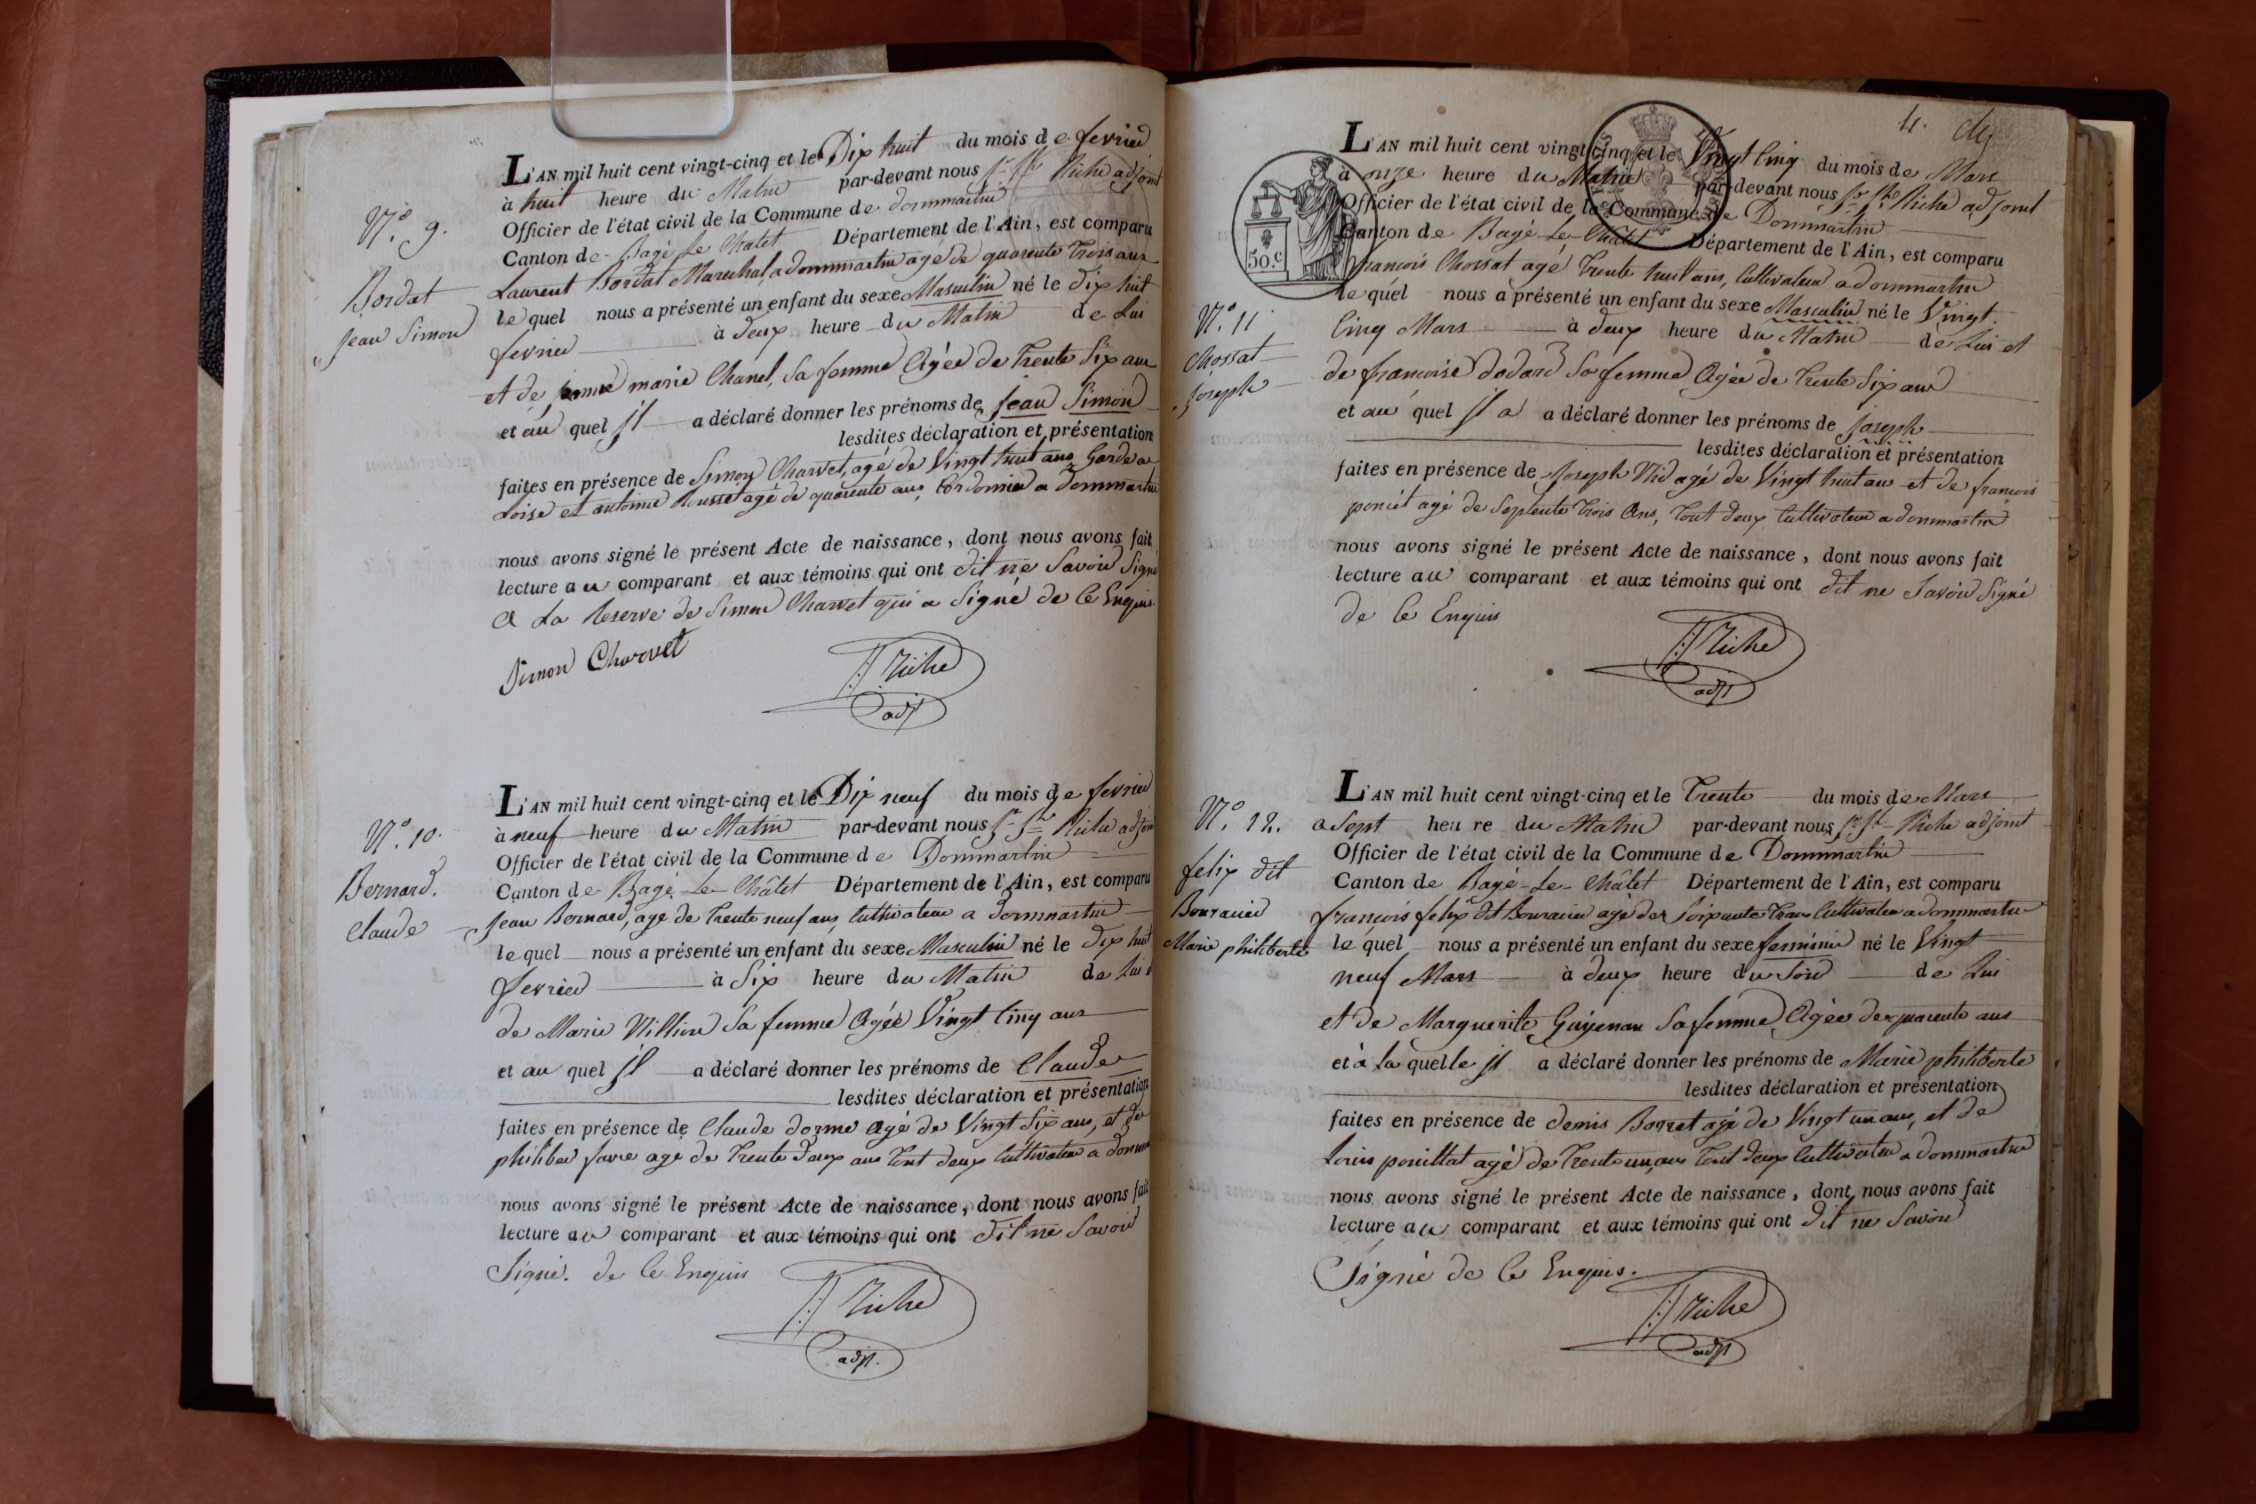 N.° 9.
Bordat
Jean Simon
L'AN mil huit cent vingt-cinq et le Dix huit du mois de fevrier
à huit heure du Matin par-devant nous Riche adjoint
Officier de l'état civil de la Commune de dommartin
Canton de Bagé Le Chalet Département de l'Ain, est comparu
Laurent Bordat Marechal a dommartin agé de quarente trois ans
le quel nous a présenté un enfant du sexe Masculin né le dix huit
fevrier à deux heure du Matin de Lui
et de marie Chanel, Sa femme Agée de Trente Six ans
et au quel jl a déclaré donner les prénoms de jean Simon
lesdites déclaration et présentation
faites en présence de Simon Charvet, agé de Vingt huit ans Garde a
Loise et antoine Rousset agé de quarente ans, Cordonnier a dommartin
nous avons signé le présent Acte de naissance, dont nous avons fait
lecture au comparant et aux témoins qui ont dit ne Savoir Signé
A La Reserve de Simon Charvet qui a Signé de Ce Enquis.
Simon Charvet
Riche
adjt
N.° 10.
Bernard.
Claude
L'AN mil huit cent vingt-cinq et le Dix neuf du mois de fevrier
à neuf heure du Matin par-devant nous Riche adjoint
Officier de l'état civil de la Commune de Dommartin
Canton de Bagé Le Châlet Département de l'Ain, est comparu
Jean Bernard, agé de Trente neuf ans, Cultivateur a dommartin
le quel nous a présenté un enfant du sexe Masculin né le dix huit
fevrier à Six heure du Matin de Lui
de Marie Sa femme Agée Vingt Cinq ans
et au quel jl a déclaré donner les prénoms de Claude
lesdites déclaration et présentation
faites en présence de Claude dorme Agé de Vingt Six ans, et de
philiber favre agé de Trente deux ans tout deux Cultivateur a
nous avons signé le présent Acte de naissance, dont nous avons fait
lecture au comparant et aux témoins qui ont dit ne Savoir
Signé. de Ce Enquis
Riche
adjt.
4.
50.c
N.° 11
Chossat
Joseph
L'AN mil huit cent vingt-cinq et le Vingt Cinq du mois de Mars
à onze heure du Matin par-devant nous Riche adjoint
Officier de l'état civil de la Commune de Dommartin
Canton de Bagé Le Châlet Département de l'Ain, est comparu
francois Chossat agé Trente huit ans, Cultivateur a dommartin
le quel nous a présenté un enfant du sexe Masculin né le Vingt
Cinq Mars à deux heure du Matin de Lui et
de francoise dodard Sa femme Agée de Trente Six ans
et au quel jl a a déclaré donner les prénoms de Joseph
lesdites déclaration et présentation
faites en présence de Joseph Nid agé de Vingt huit ans et de francois
poncet agé de Septente trois Ans, tout deux Cultivateur a dommartin
nous avons signé le présent Acte de naissance, dont nous avons fait
lecture au comparant et aux témoins qui ont dit ne Savoir Signé
de Ce Enquis
Riche
adjt
N.° 12.
felix dit
Bouracier
Marie philiberte
L'AN mil huit cent vingt-cinq et le Trente du mois de Mars
a Sept heure du Matin par-devant nous Riche adjoint
Officier de l'état civil de la Commune de Dommartin
Canton de Bagé-Le-Châlet Département de l'Ain, est comparu
françois felix dit Bouracier agé de Soixante Cultivateur a dommartin
le quel nous a présenté un enfant du sexe feminin né le Vingt
neuf Mars à deux heure du Soir de Lui
et de Marguerite Guyenan Sa femme Agée de quarente ans
et à la quelle jl a déclaré donner les prénoms de Marie philiberte
lesdites déclaration et présentation
faites en présence de denis Borret agé de Vingt un ans, et de
Louis pouillat agé de Trente un ans tout deux Cultivateur a dommartin
nous avons signé le présent Acte de naissance, dont nous avons fait
lecture au comparant et aux témoins qui ont dit ne Savoir
Signé de Ce Enquis.
Riche
adjt